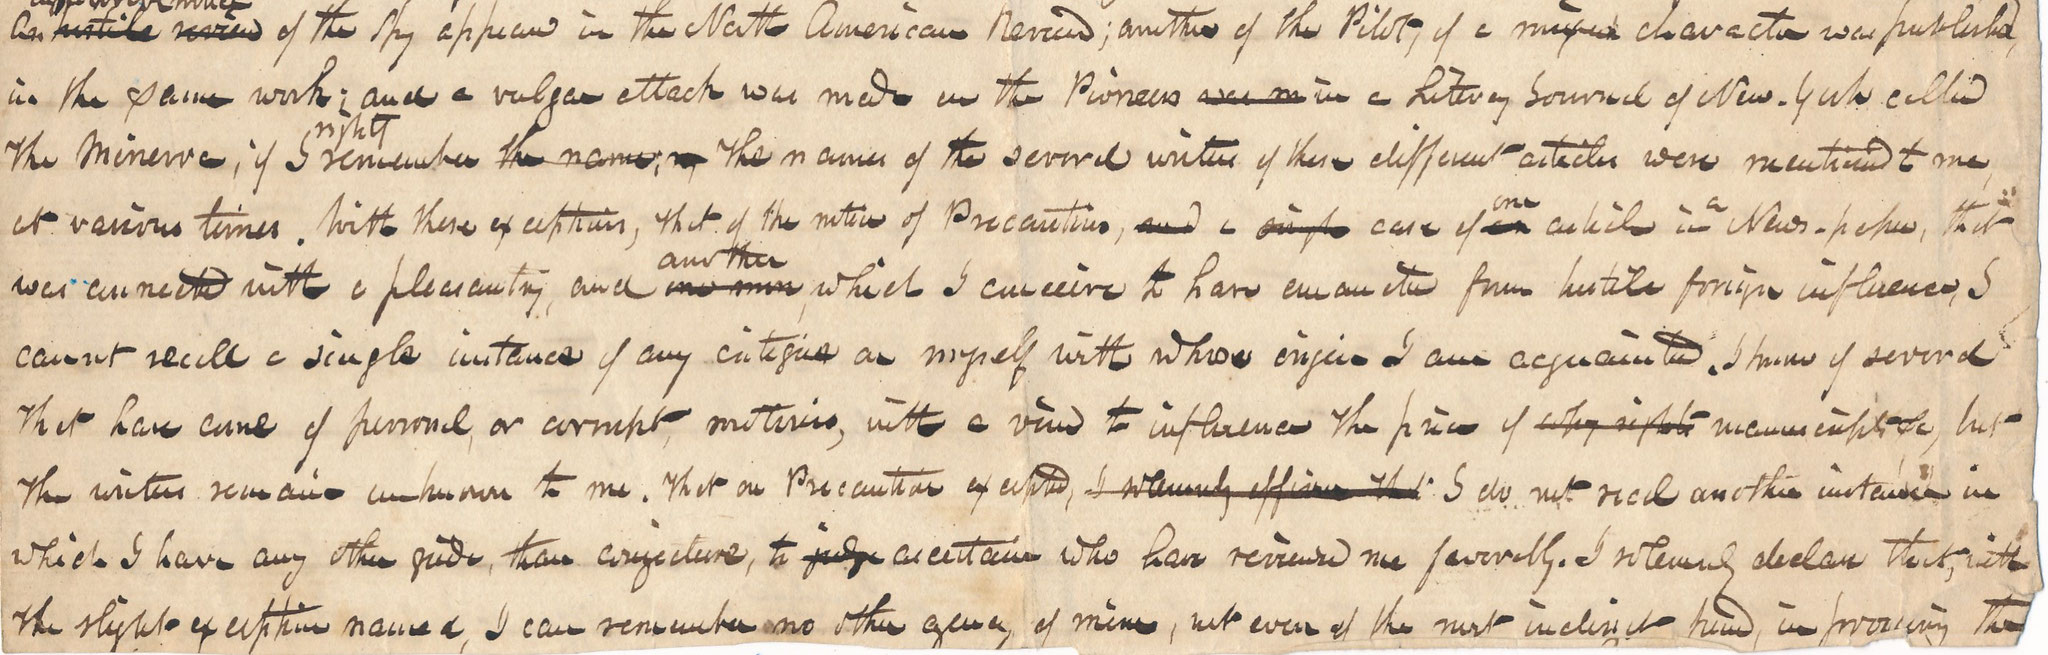 an hostile review of the Spy appeared in the North American Review; another of the Pilot, of a mixed character was published,
in the same work; and a vulgar attack was made on the Pioneers in a Literary Journal of New-York called
right
the Minerva, if I remember the name; The names of the several writers of these different articles were mentioned to me,
one a
at various times. With these exceptions, that of the notice of Precaution, and a single case of an article in News-paper, that
another
was connected with a pleasantry, and one more, which I conceive to have emanated from hostile foreign influence, I
cannot recall a single instance of any critique on myself with whose origin I am acquainted. I know of several
that have come of personal, or corrupt, motives, with a view to influence the price of copy rights manuscripts &c, but
the writers remain unknown to me. That on Precaution excepted, I solemnly affirm that I do not recal another instance in
which I have any other guide, than conjecture, to judge ascertain who have reviewed me favorably. I solemnly declare that, with
the slight exception named, I can remember no other agency of mine, not even of the most indirect kind, in procuring the